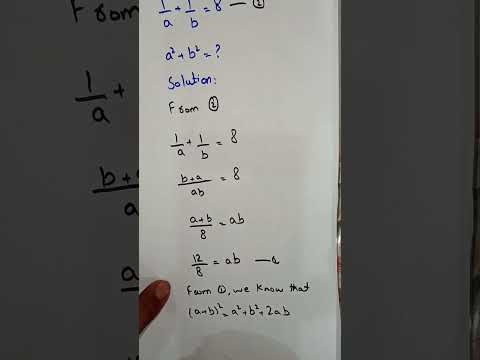 1/a + 1/b = 8 — ②
a² + b² = ?
Solution:
From ②
1/a + 1/b = 8
b+a/ab = 8
a+b/8 = ab
12/8 = ab — a
From ①, we know that
(a+b)² = a² + b² + 2ab